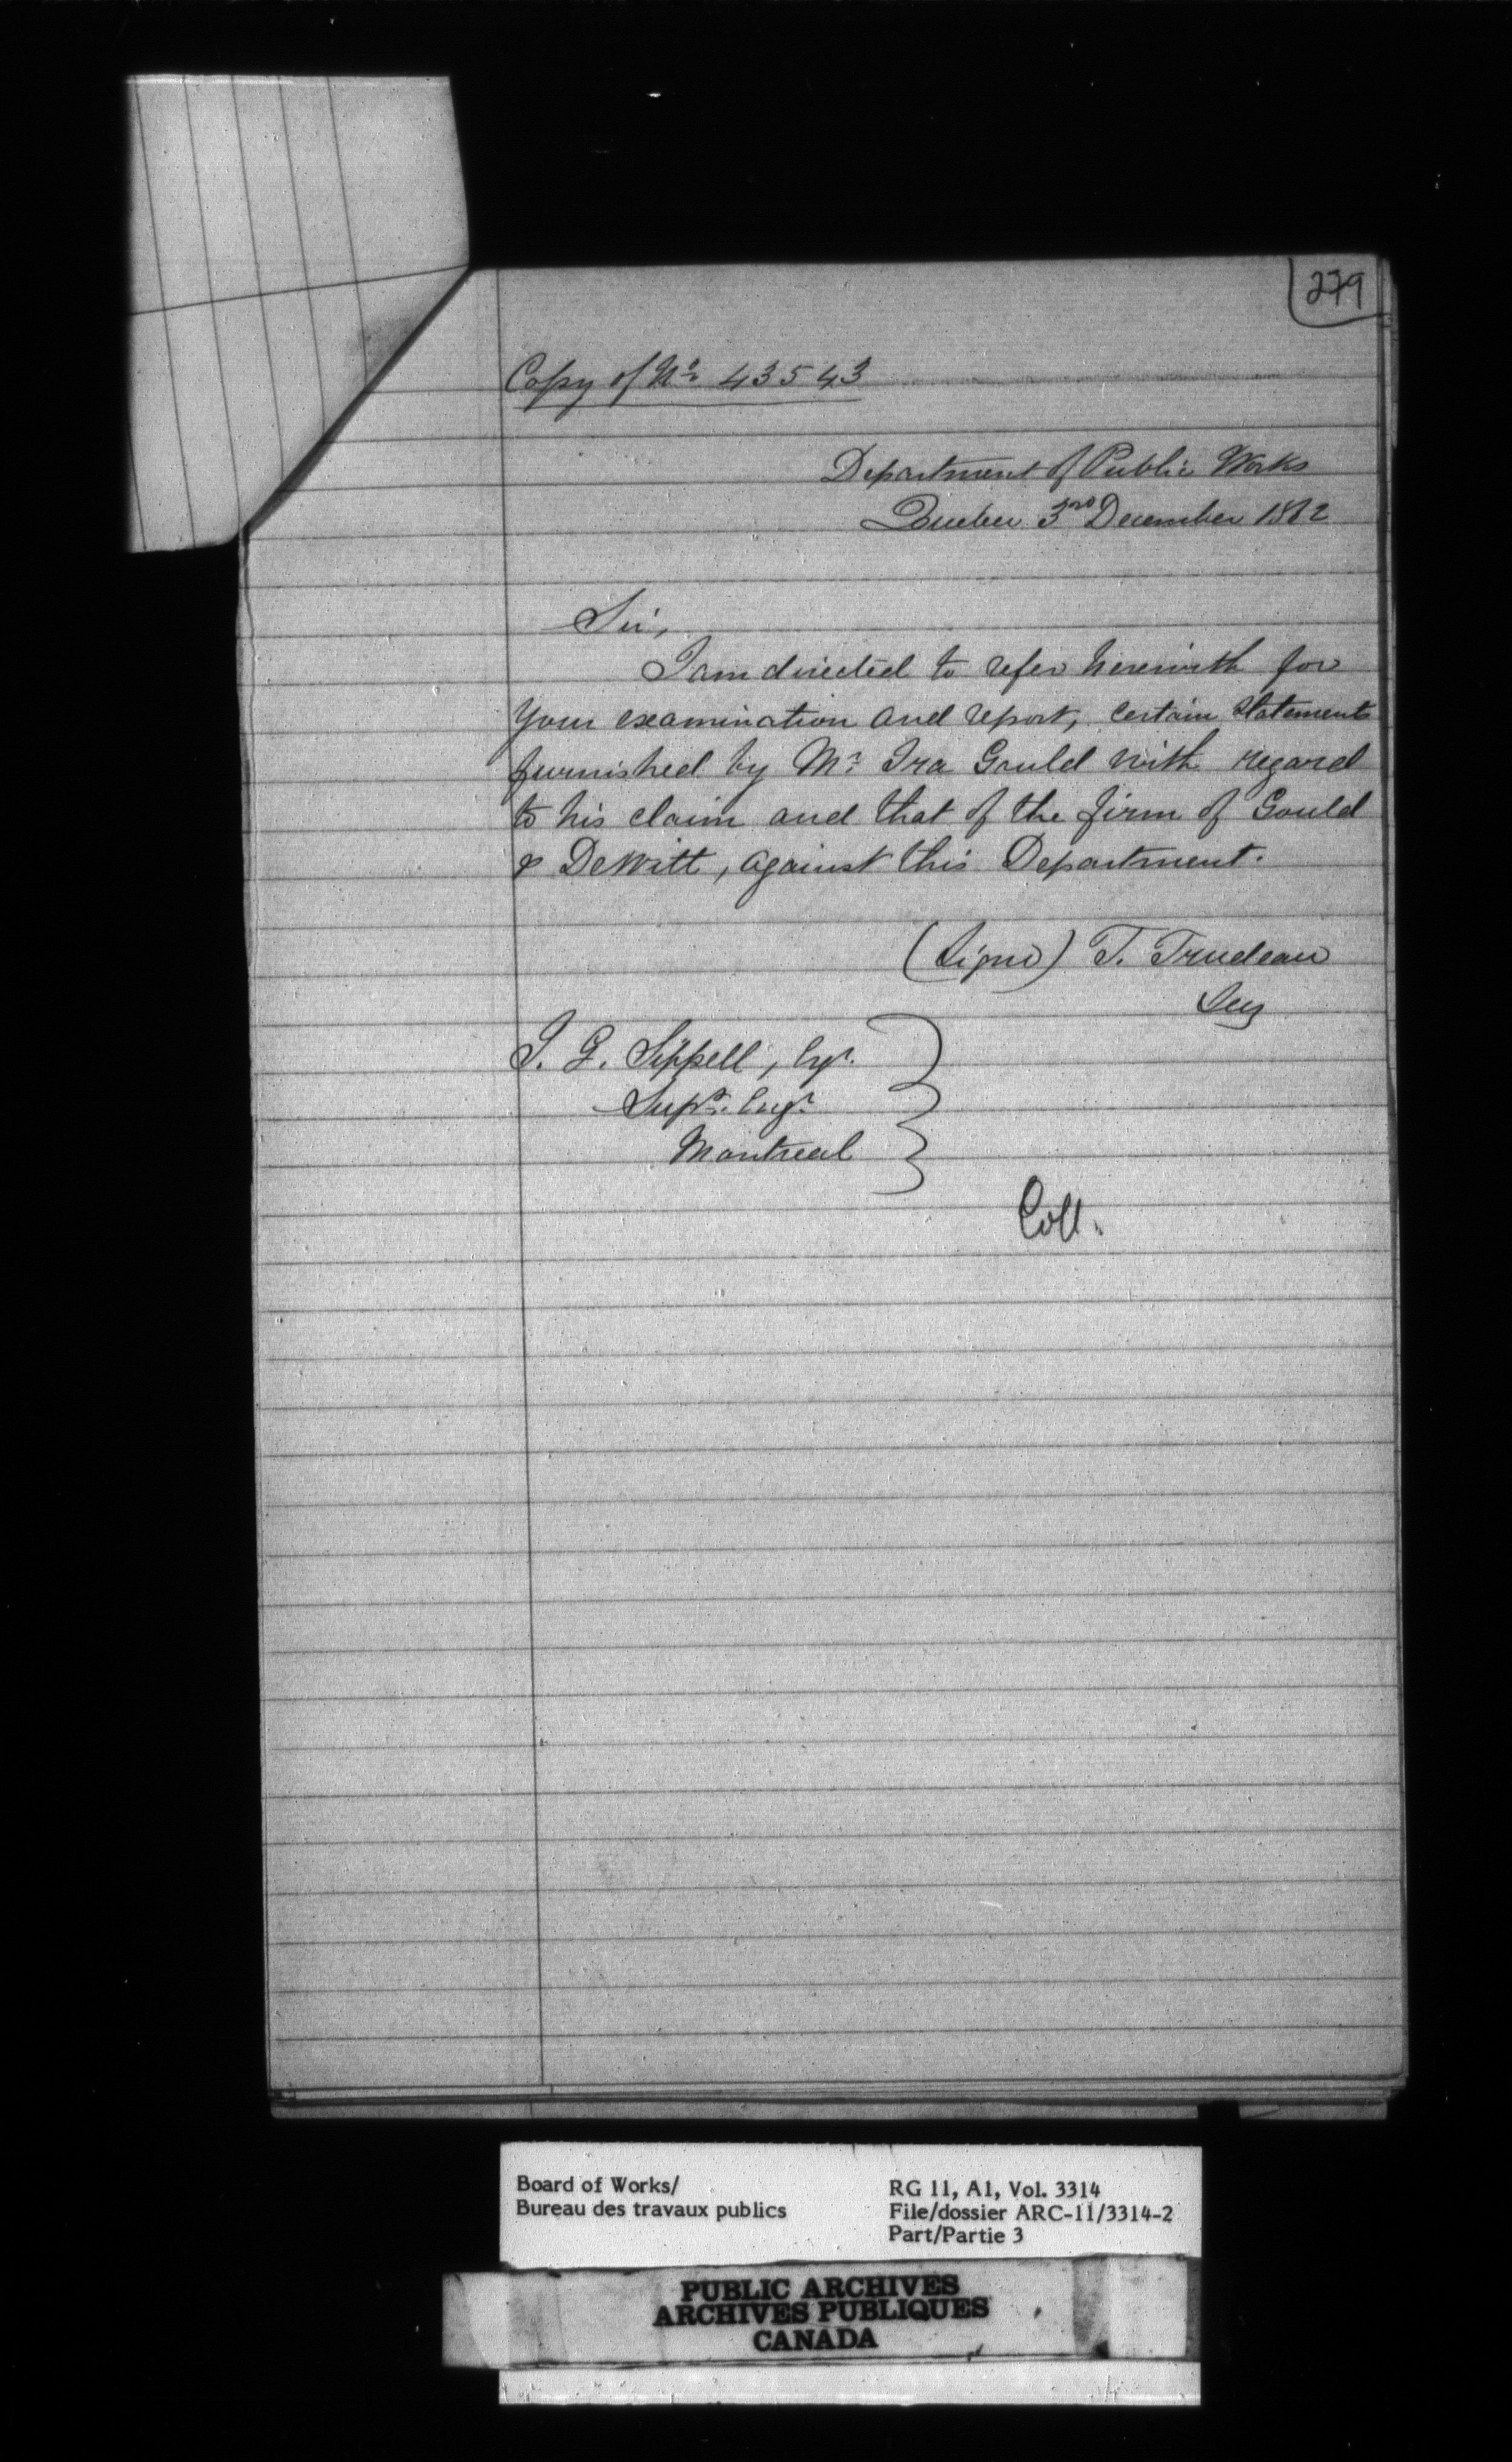 279
Copy of No. 43543
Department of Public Works
Quebec 3rd December 1862
Sir,
I am directed to refer herewith for
your examination and report, certain statements
furnished by Mr. Ira Gould with regard
to his claim and that of the firm of Gould
& DeWitt, against this Department.
(Signed) T. Trudeau
Secy
J. G. Sippell, Esqr.
Supg. Engr.
Montreal
Coll.
Board of Works/
Bureau des travaux publics
RG 11, A1, Vol. 3314
File/dossier ARC-11/3314-2
Part/Partie 3
PUBLIC ARCHIVES
ARCHIVES PUBLIQUES
CANADA